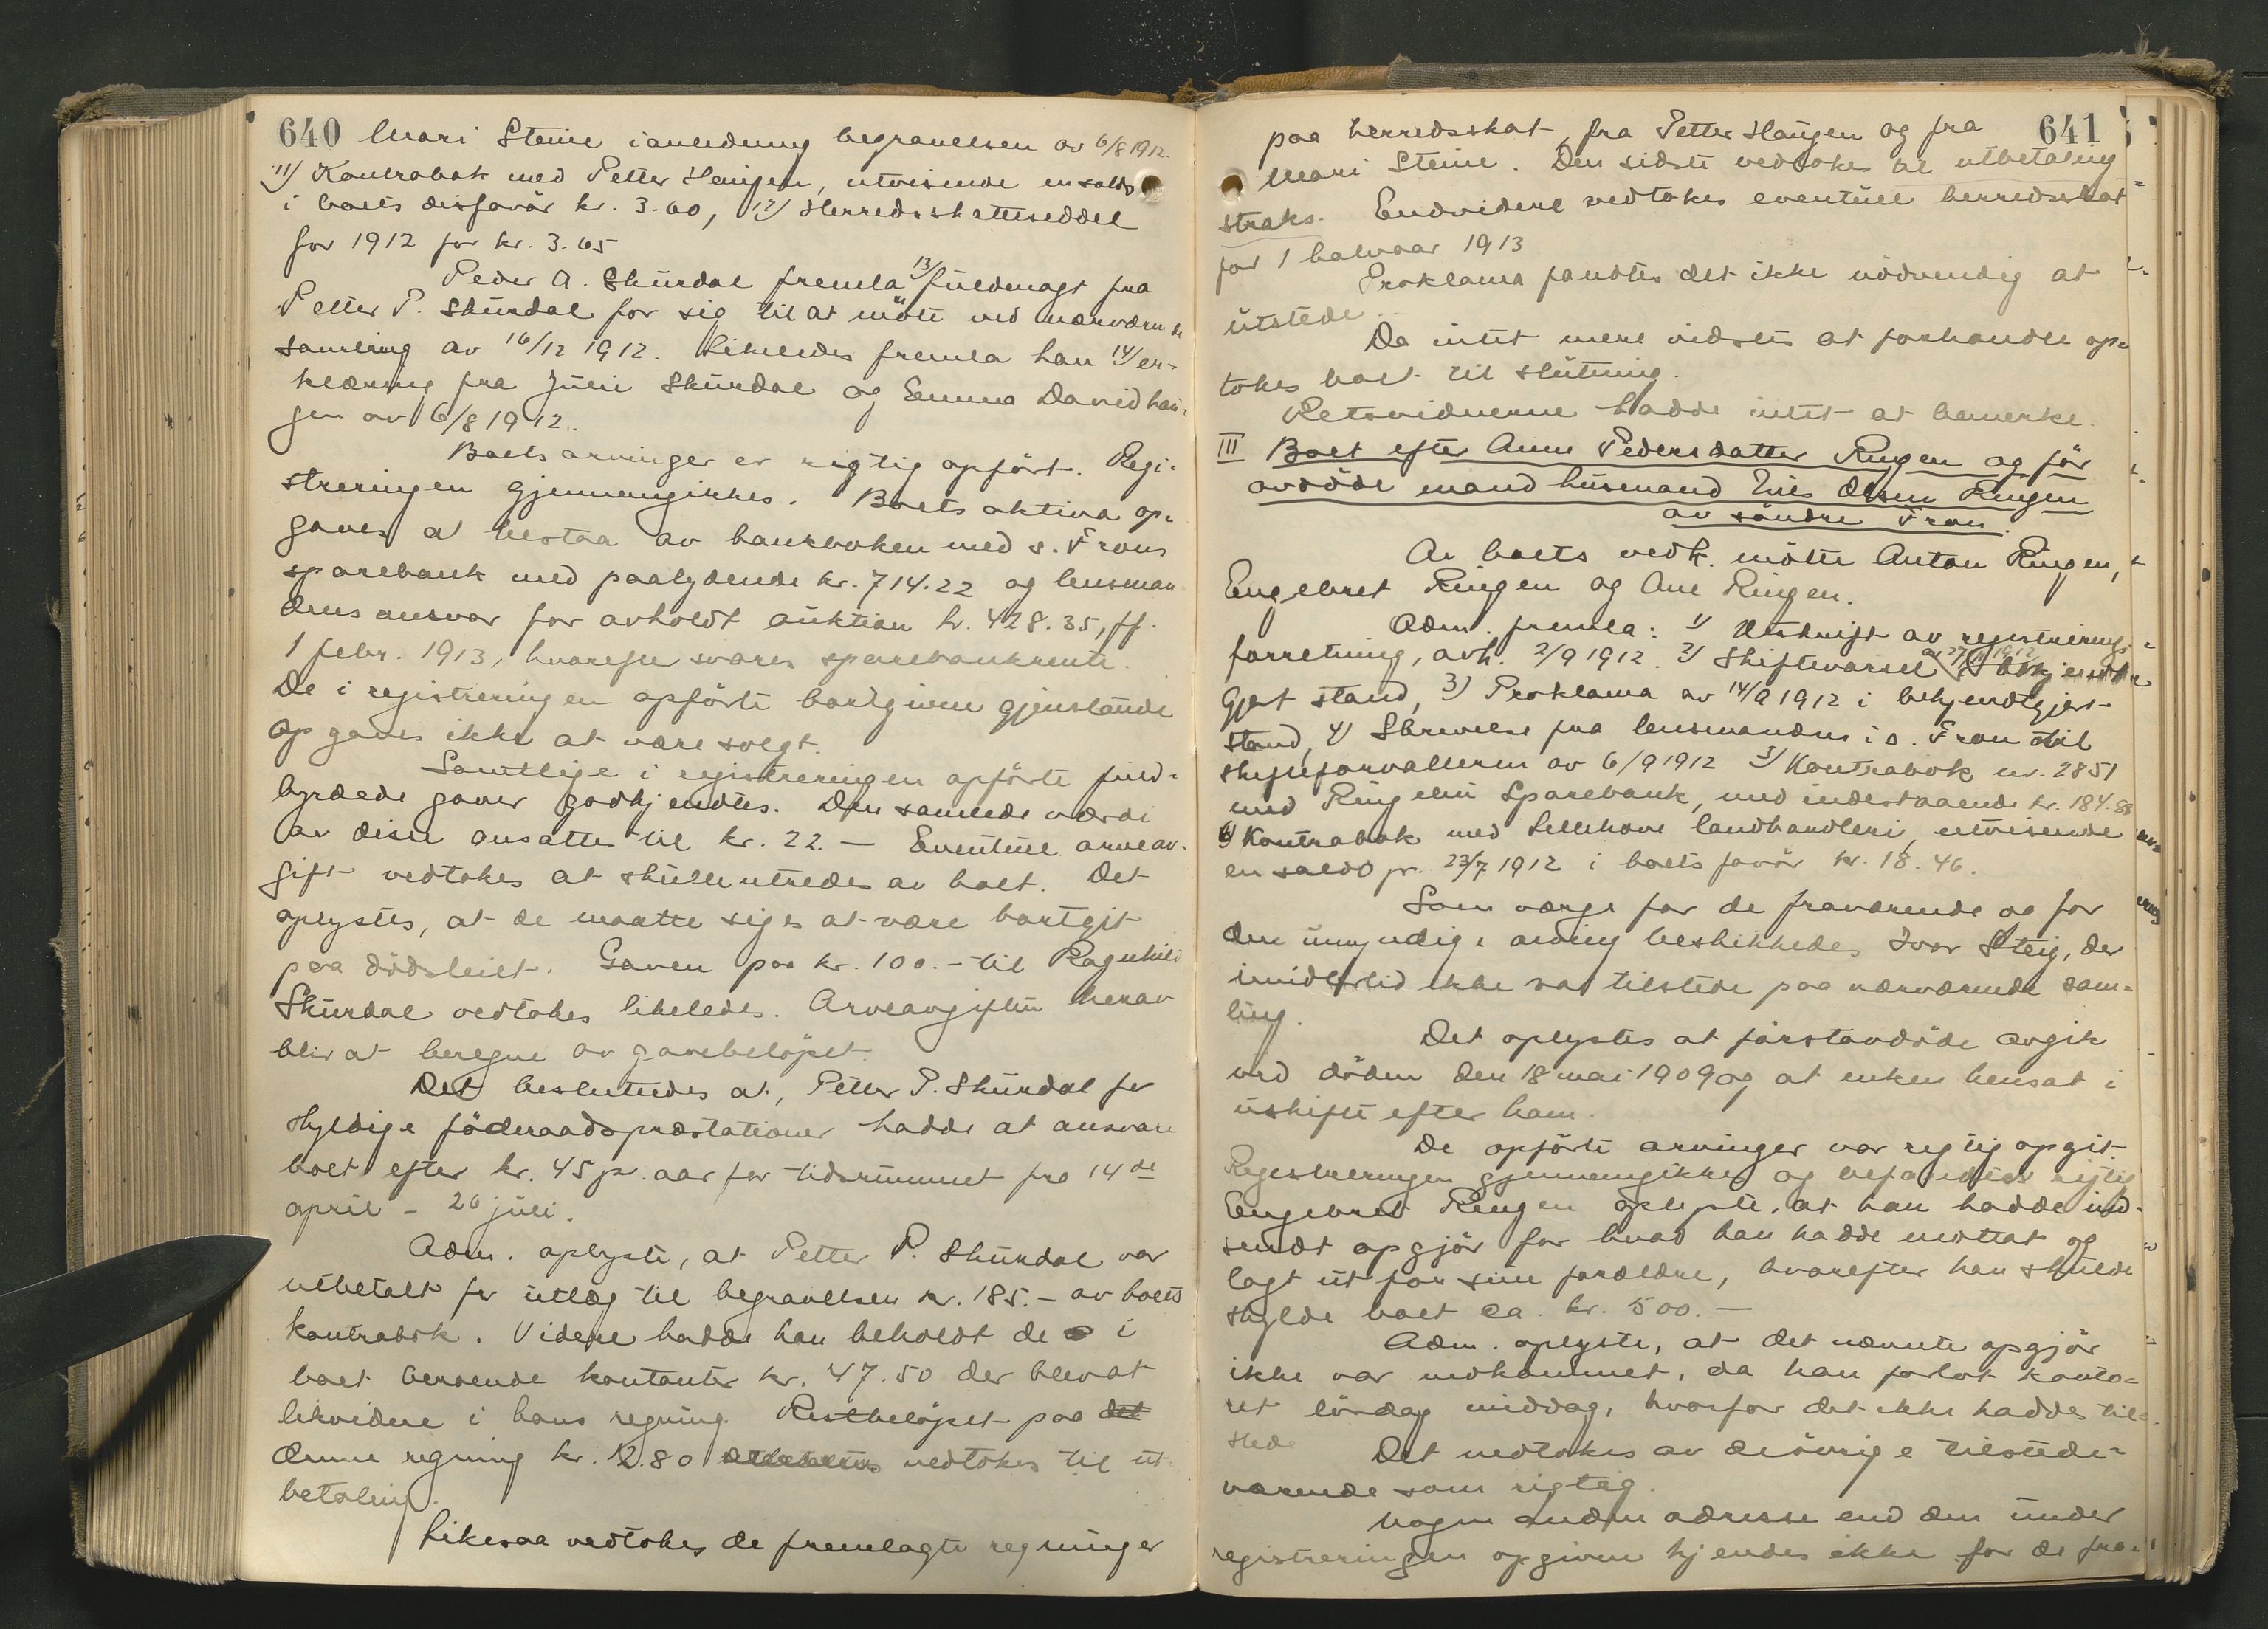 640 Mari Steine i anledning begravelsen av 6/8 1912.
11) Kontrabok med Petter Haugen, utvisende en saldo
i boets disfavör kr. 3.60, 12) Herredsskatteseddel
for 1912 for kr. 3.65
Peder A. Skurdal fremla 13) fuldmagt fra
Petter P. Skurdal for sig til at möte ved nærværende
samling av 16/12 1912. Likeledes fremla han 14) er-
klæring fra Juli Skurdal og Emma Davidhau-
gen av 6/8 1912.
Boets arvinger er rigtig opfört. Regi-
streringen gjennemgikkes. Boets aktiva op-
gaves at bestaa av bankboken med s. Frons
sparebank med paalydende kr. 714.22 og lensman-
dens ansvar for avholdt auktion kr. 428.35, ff.
1 febr. 1913, hvorefter svares sparebankrente.
De i registreringen opförte bortgivne gjenstande
opgaves ikke at være solgt.
Samtlige i registreringen opförte fuld-
byrdede gaver godkjendtes. Den samlede værdi
av disse ansattes til kr. 22.— Eventuel arveav-
gift vedtokes at skulle utredes av boet. Det
oplystes, at de maatte siges at være bortgit
paa dödsleiet. Gaven paa kr. 100.- til Ragnhild
Skurdal vedtokes likeledes. Arveavgiften herav
blir at beregne av gavebelöpet.
Det besluttedes at, Petter P. Skurdal for
skyldige föderaadspræstationer hadde at ansvare
boet efter kr. 45 pr. aar for tidsrummet fra 14de
april - 26 juli.
Adm. oplyste, at Petter P. Skurdal var
utbetalt for utlæg til begravelsen kr. 185.- av boets
kontrabok. Videre hadde han beholdt de i
boet beroende kontanter kr. 47.50 der blev at
likvidere i hans regning. Restbelöpet paa det
denne regning kr. 12.80 vedtokes til ut-
betaling.
Likesaa vedtokes de fremlagte regninger
641
paa herredsskat, fra Petter Haugen og fra
Mari Steine. Den sidste vedtokes til utbetaling
straks. Endvidere vedtokes eventuel herredsskat
for 1 halvaar 1913
Proklama fandtes det ikke nödvendig at
utstede.
Da intet mere vidstes at forhandle op-
tokes boet til slutning.
Retsvidnerne hadde intet at bemerke.
III Boet efter Anne Pedersdatter Ringen og för
avdöde mand husmand Nils Olsen Ringen
av söndre Fron.
Av boets vedk. mötte Anton Ringen,
Engebret Ringen og Ane Ringen.
Adm. fremla: 1) Utskrift av registrerings-
forretning, avh. 2/9 1912. 2) Skiftevarsel av 27/11 1912 i bekjendt-
gjort stand, 3) Proklama av 14/9 1912 i bekjendtgjort
stand, 4) Skrivelse fra lensmanden i s. Fron til
skifteforvalteren av 6/9 1912 5) Kontrabok nr. 2851
med Ringebu Sparebank, med indestaaende kr. 184.88
6) Kontrabok med Sellehove landhandleri, utvisende
en saldo pr. 23/7 1912 i boets favör kr. 18.46.
Som værge for de fraværende og for
den umyndige arving beskikkedes Ivar Steig, der
imidlertid ikke var tilstede paa nærværende sam-
ling.
Det oplystes at förstavdöde avgik
ved döden den 18 mai 1909 og at enken hensat i
uskifte efter ham.
De opförte arvinger var rigtig opgit.
Registreringen gjennemgikkes og befandtes rigtig
Engebret Ringen oplyste, at han hadde ind-
sendt opgjör for hvad han hadde mottat og
lagt ut for sine forældre, hvorefter han skulde
skylde boet ca. kr. 500.—
Adm. oplyste, at det nævnte opgjör
ikke var indkommet, da han forlot konto-
ret lördag middag, hvorfor det ikke haddes til-
stede
Det vedtokes av de övrige tilstede-
værende som rigtig.
Nogen anden adresse end den under
registreringen opgivne kjendes ikke for de fra-